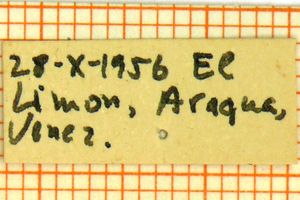 28-X-1956 El
Limon, Aragua,
Venez.